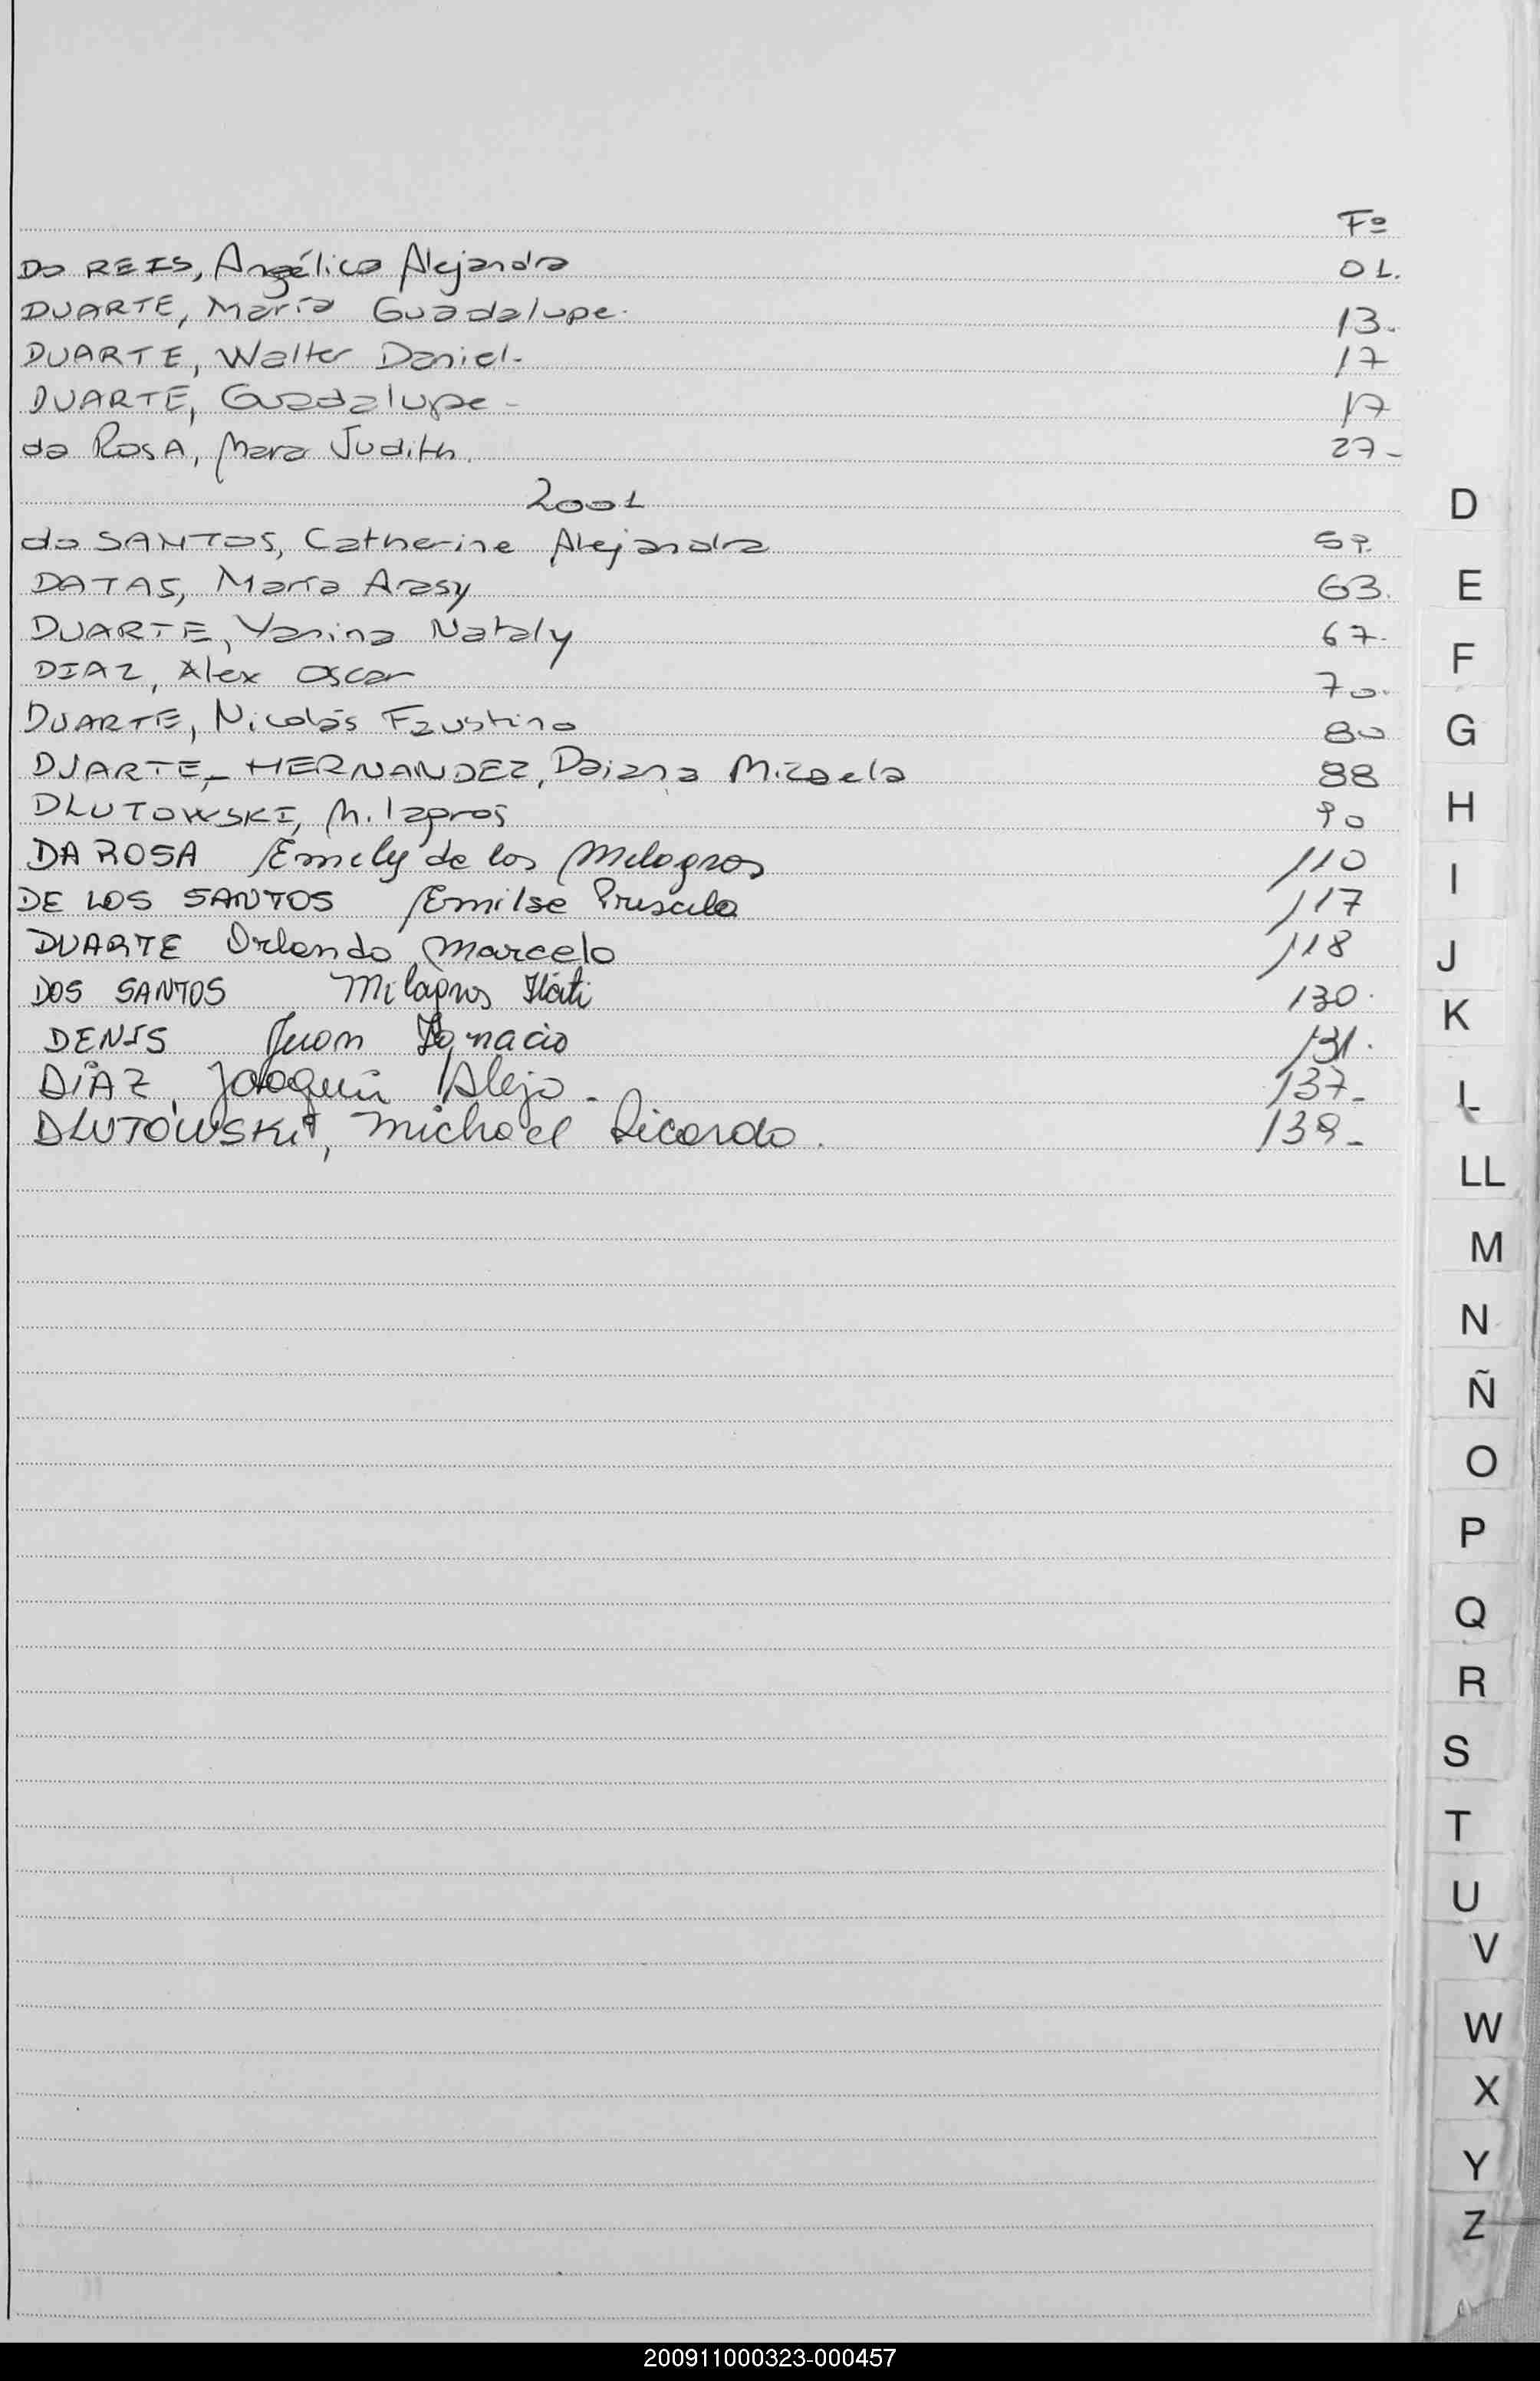 Fº
Do REIS, Angélica Alejandra 01.
DUARTE, María Guadalupe. 13.
DUARTE, Walter Daniel. 17
DUARTE, Guadalupe - 17
da RosA, Mara Judith. 27-
2001
do SANTOS, Catherine Alejandra 59.
DATAS, María Arasy 63.
DUARTE, Yanina Nataly 67.
DIAZ, Alex Oscar 70.
DUARTE, Nicolás Faustino 80
DUARTE-HERNANDEZ, Daiana Micaela 88
DLUTOWSKI, Milagros 90
DA ROSA Emily de los Milagros 110
DE LOS SANTOS Emilse Priscila 117
DUARTE Orlando Marcelo 118
DOS SANTOS Milagros Itati 130.
DENIS Juan Ignacio 131.
DÍAZ, Joaquín Alejo - 137-
DLUTOWSKI, Michael Ricardo. 139-
D
E
F
G
H
I
J
K
L
LL
M
N
Ñ
O
P
Q
R
S
T
U
V
W
X
Y
Z
200911000323-000457